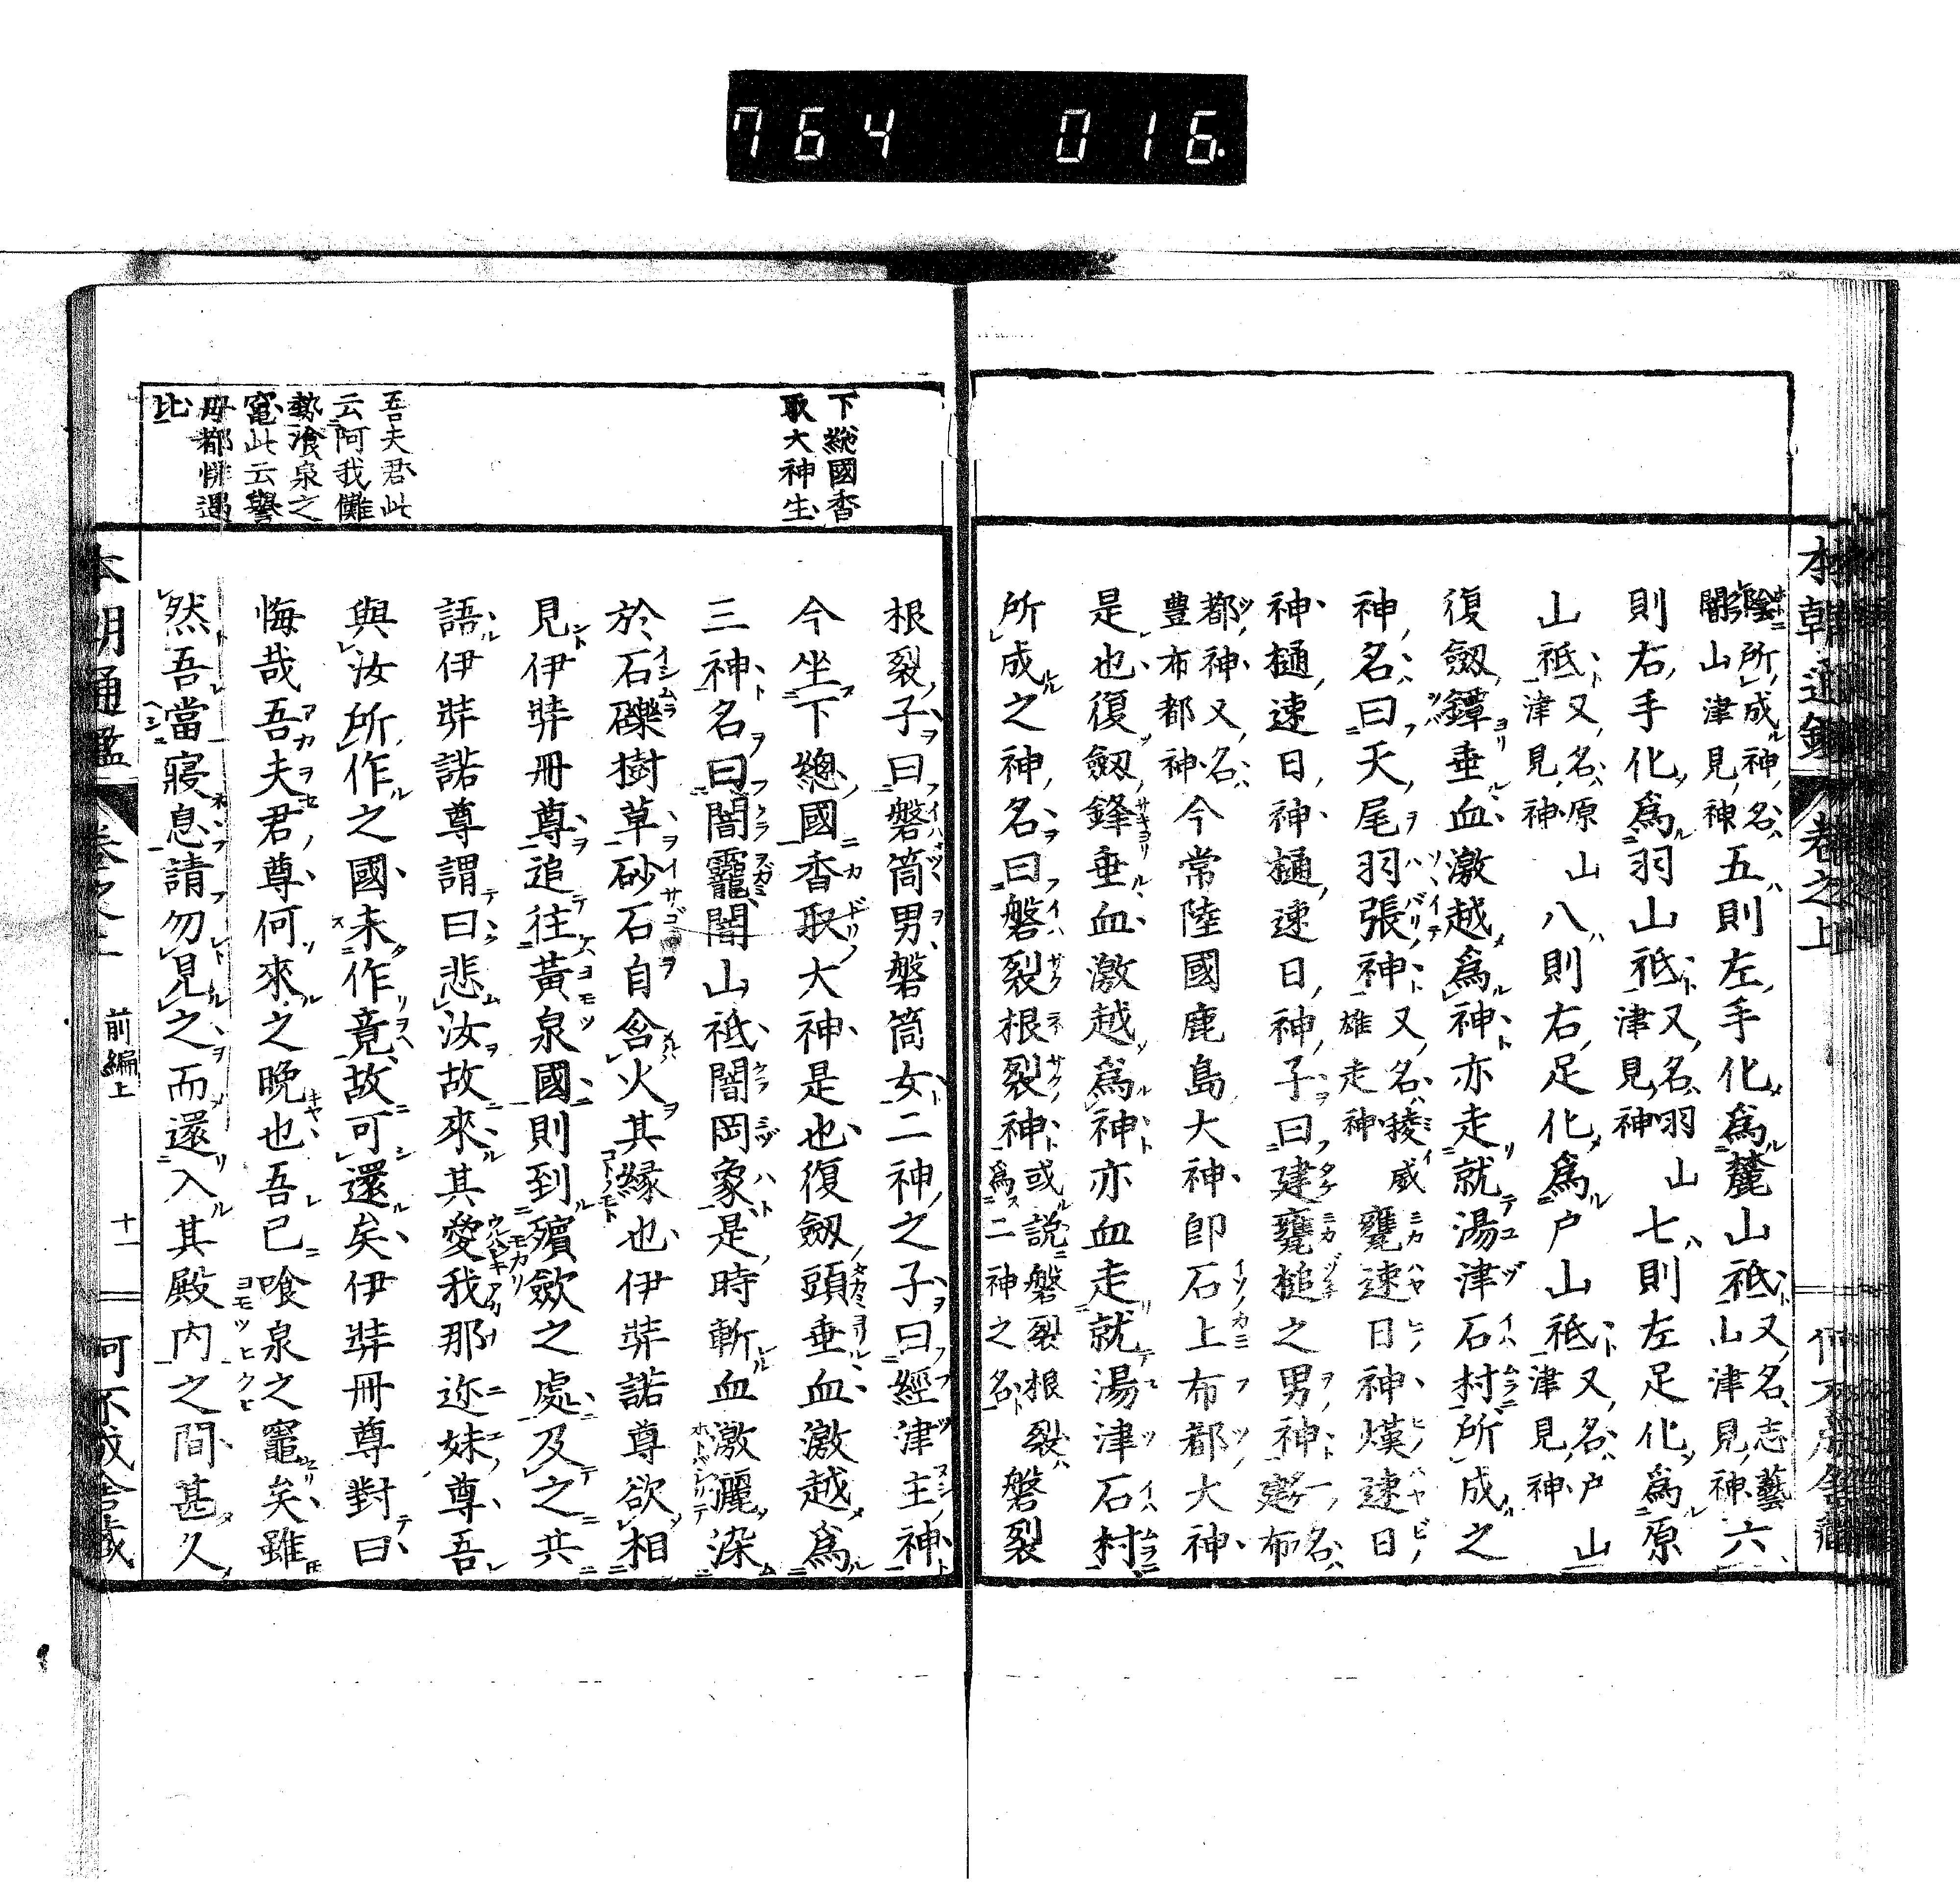 764 016.
本朝通鑑 卷之上
陰所成神名闇山津見神五則左手化爲麓山祇又名志藝山津見神六
則右手化爲羽山祇又名羽山津見神七則左足化爲原
山祇又名原山津見神八則右足化爲戸山祇又名戸山津見神
復劔鐔垂血激越爲神亦走就湯津石村所成之
神名曰天尾羽張神又名稜威雄走神甕速日神熯速日
神樋速日神樋速日神子曰建甕槌之男神一名建布
都神又名豊布都神今常陸國鹿島大神卽石上布都大神
是也復劔鋒垂血激越爲神亦血走就湯津石村
所成之神名曰磐裂根裂神或説磐裂根裂爲二神之名磐裂
下総國香
取大神生
吾夫君此
云阿我儺
勢飡泉之
竈此云譽
母都俳遇
比
根裂子曰磐筒男磐筒女二神之子曰經津主神
今坐下總國香取大神是也復劔頭垂血激越爲
三神名曰闇龗闇山祇闇罔象是時斬血激灑染
於石礫樹草砂石自含火其縁也伊弉諾尊欲相
見伊弉冊尊追往黃泉國則到殯歛之處及之共
語伊弉諾尊謂曰悲汝故來其愛我那迩妹尊吾
與汝所作之國未作竟故可還矣伊弉冊尊對曰
悔哉吾夫君尊何來之晩也吾已喰泉之竈矣雖
然吾當寢息請勿見之而還入其殿内之間甚久
本朝通鑑 卷之上 前編上 十一